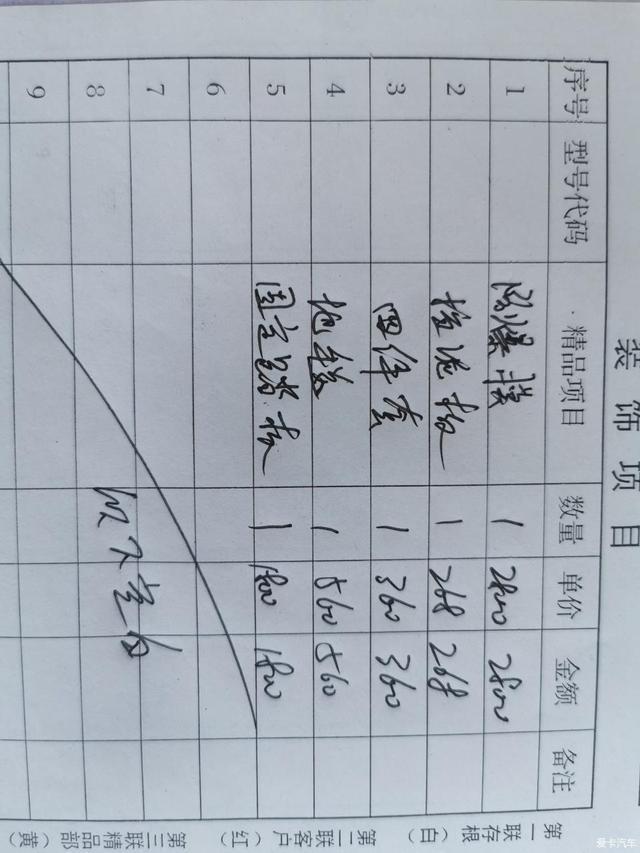 装饰项目
序号 型号代码 精品项目 数量 单价 金额 备注
1 防爆膜 1 2800 2800
2 挡泥板 1 268 268
3 四件套 1 360 360
4 地毯 1 560 560
5 固定踏板 1 1800 1800
6
7
8 以下空白
9
第一联存根(白)
第二联客户(红)
第三联精品部(黄)
爱卡汽车